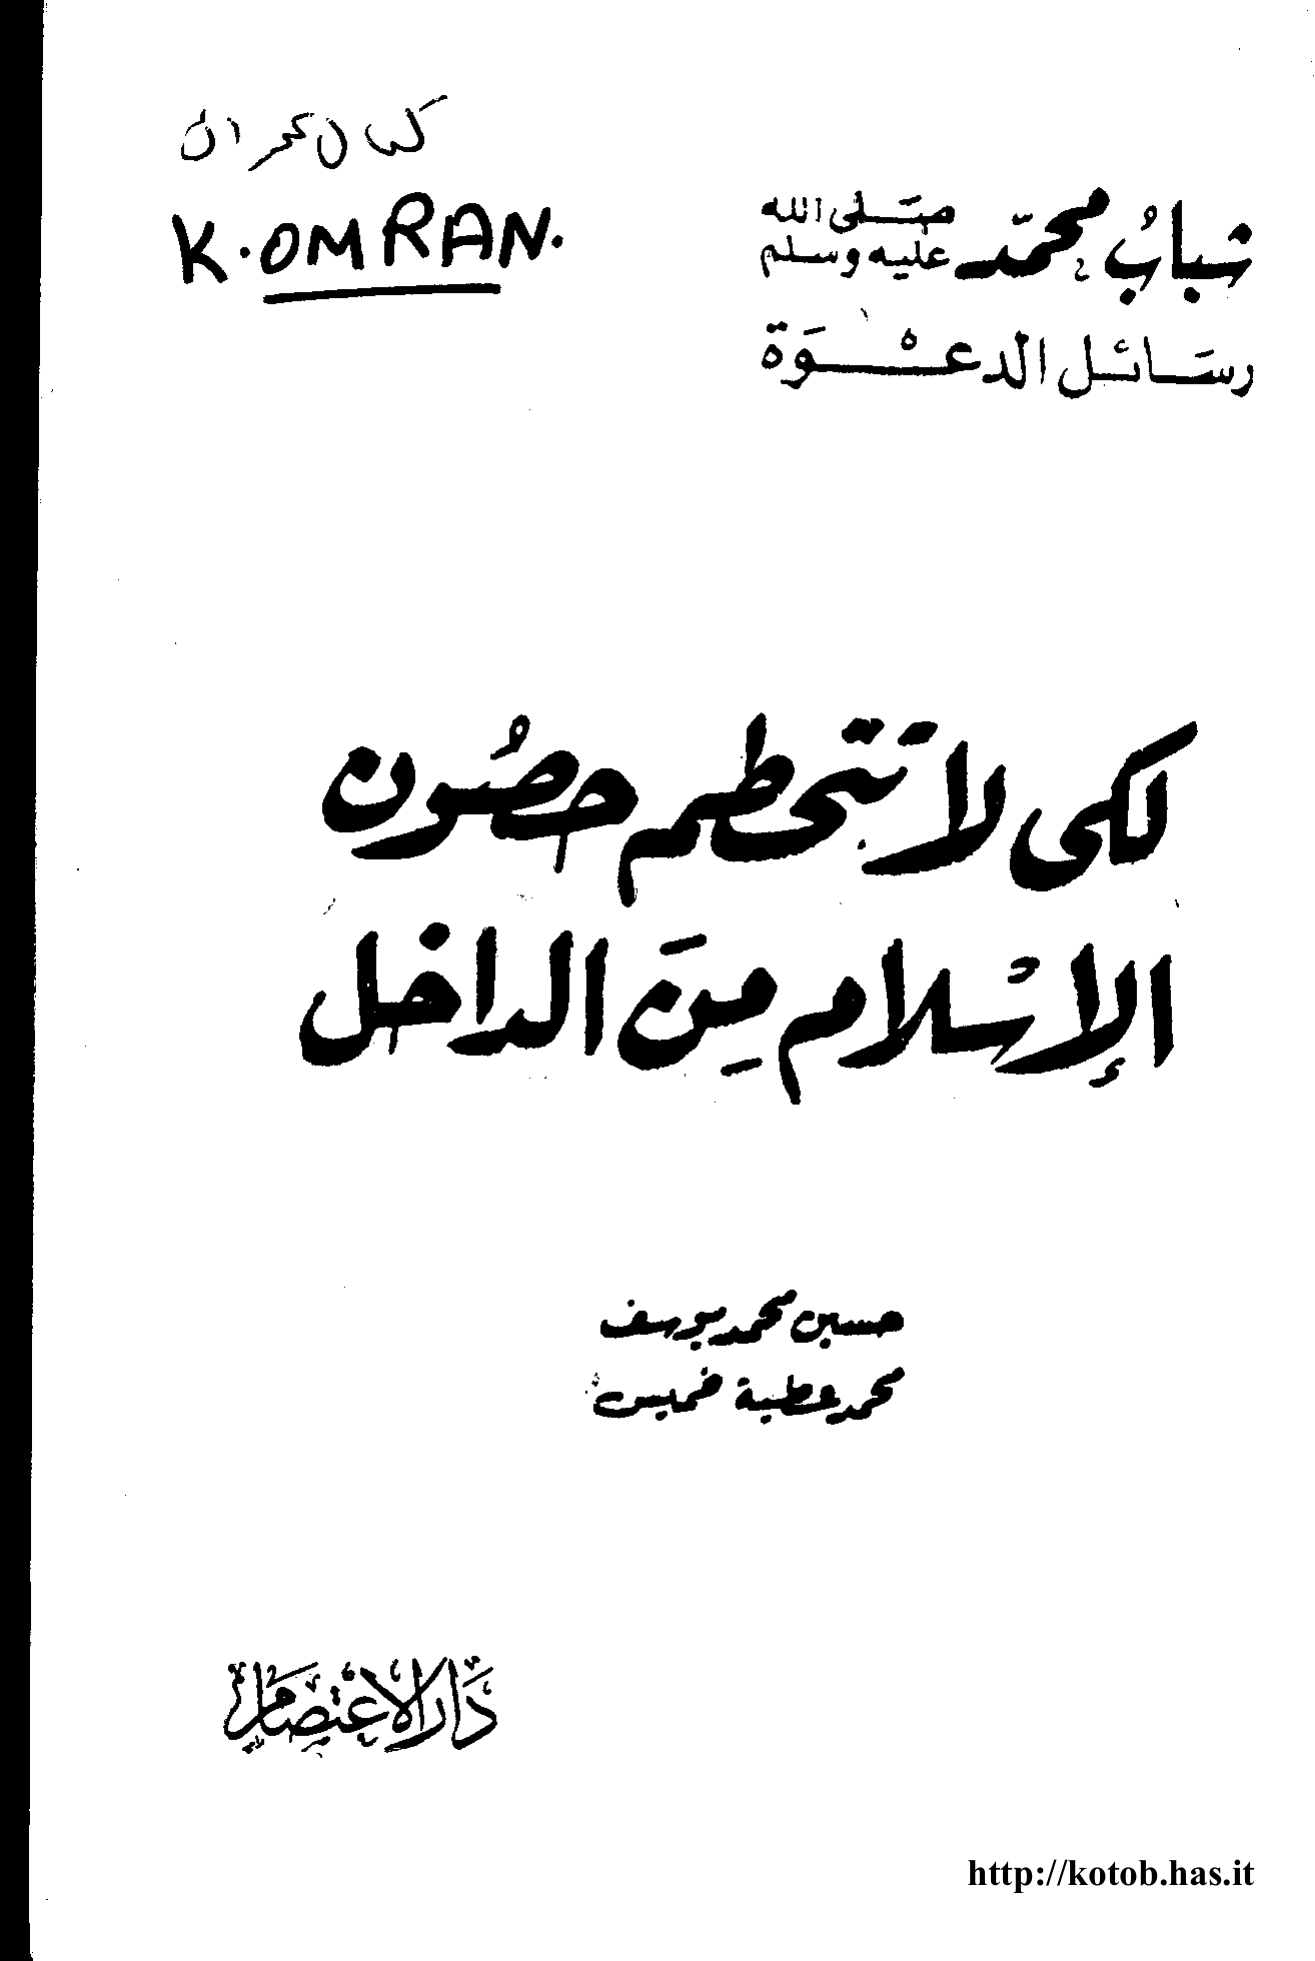 كمال عمران
K. OMRAN.
شبابُ محمّد صَلى الله عليه وسلم
رسَائل الدعْوَة
لكى لا تَتحطم حصُون
الإسْلام مِنَ الداخل
حسين محمد يوسف
محمد عطية خميس
دَار الاعْتِصَام
http://kotob.has.it